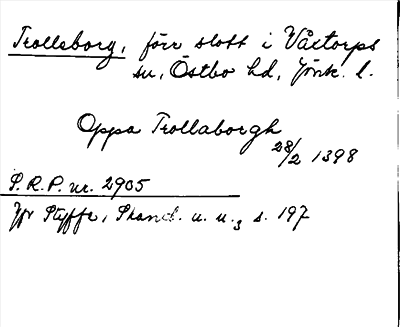 Trollsborg, förr slott i Våxtorps
sn, Östbo hd, Jönk. l.
Oppa Trollaborgh
28/2 1398
S.R.P. nr. 2905
Jfr Styffe, Skand. u. u.3 s. 197